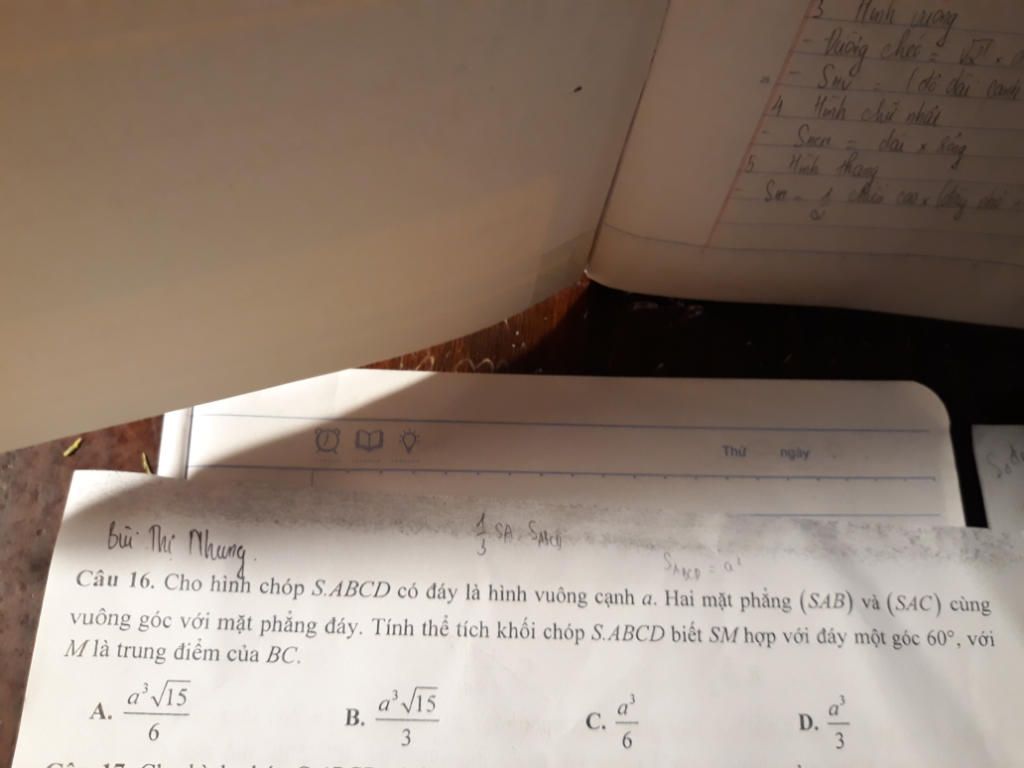 3 Hình vuông
- Đường chéo = √2 ×
- Smv = (độ dài cạnh
4 Hình chữ nhật
- Smcn = dài × rộng
5 Hình thang
- = 1/2 chiều cao × (đáy
Thứ ngày
Bùi Thị Nhung.
1/3 SA. SABCD
SABCD = a²
Câu 16. Cho hình chóp S.ABCD có đáy là hình vuông cạnh a. Hai mặt phẳng (SAB) và (SAC) cùng
vuông góc với mặt phẳng đáy. Tính thể tích khối chóp S.ABCD biết SM hợp với đáy một góc 60°, với
M là trung điểm của BC.
A. a³√15/6 B. a³√15/3 C. a³/6 D. a³/3